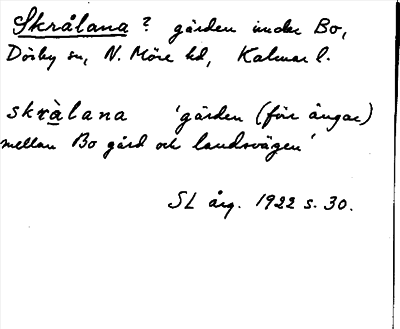 Skrålana ? gärden under Bo,
Dörby sn, N. Möre hd, Kalmar l.
skràlana 'gärden (förr ängar)
mellan Bo gård och landsvägen'
SL årg. 1922 s. 30.